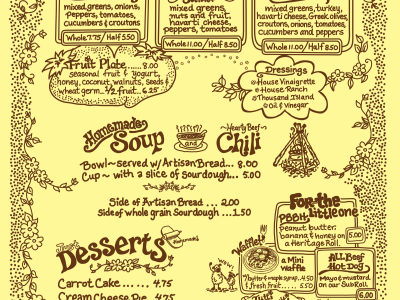 mixed greens, onions,
peppers, tomatoes,
cucumbers & croutons
Whole 7.75 / Half 5.50
mixed greens,
nuts and fruit,
havarti cheese,
peppers, tomatoes
Whole 11.00 / Half 8.50
mixed greens, turkey,
havarti cheese, Greek olives,
croutons, onions, tomatoes,
cucumbers and peppers
Whole 11.00 / Half 8.50
Fruit Plate ...... 8.00
seasonal fruit & yogurt,
honey, coconut, walnuts, seeds &
wheat germ.. 1/2 fruit.. 6.25
Dressings
House Vinaigrette
House Ranch
Thousand Island
Oil & Vinegar
Homemade
Soup
and
Hearty Beef
Chili
Bowl~served w/Artisan Bread... 8.00
Cup ~ with a slice of Sourdough... 5.00
Side of Artisan Bread ... 2.00
Side of whole grain Sourdough ...1.50
Desserts
Homemade
Carrot Cake ...... 4.75
Cream Cheese Pie . 4.75
For the
Little one
PBBH: peanut butter,
banana & honey on
a Heritage Roll.
5.00
Waffle!
a Mini
Waffle
w/butter & maple syrup.. 4.50
& fresh fruit....... 5.50
ALL Beef
Hot Dog
Mayo & mustard
on our Sub Roll
6.00